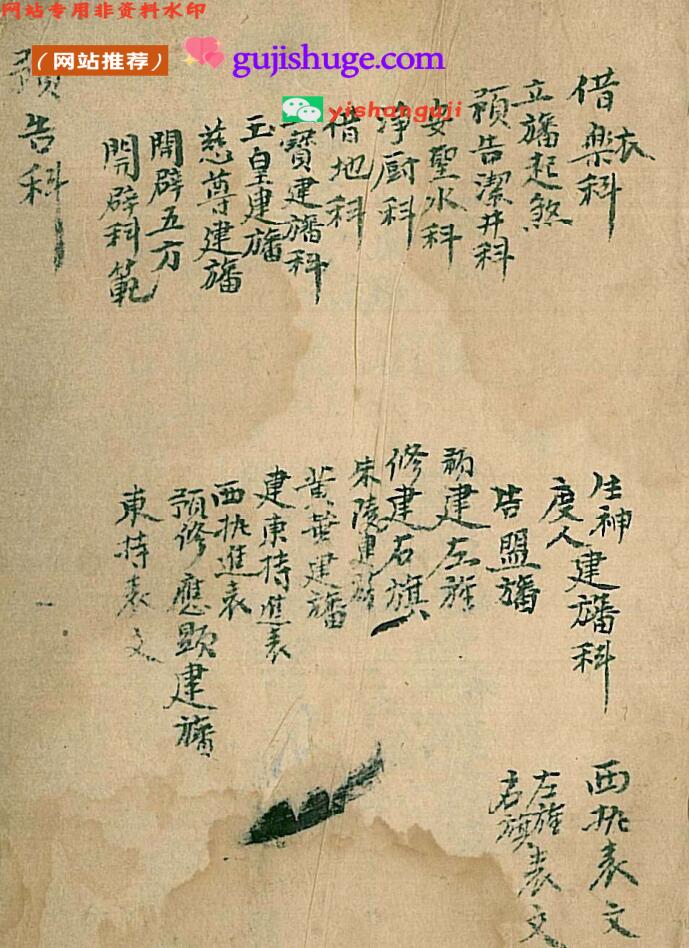 网站专用非资料水印
（网站推荐）
gujishuge.com
yishanguji
借衣樂科
立旛起煞
預告潔井科
安聖水科
净廚科
借地科
寶建旛科
玉皇建旛
慈尊建旛
開辟五方
開辟科範
預告科
生神建旛科
度人
告盟旛
建左旌
修建右旗
朱陵建旛
黄籙建旛
建東持進表
西批進表
預修應顯建旛
東持表文
西批表文
左旌
右旗表文